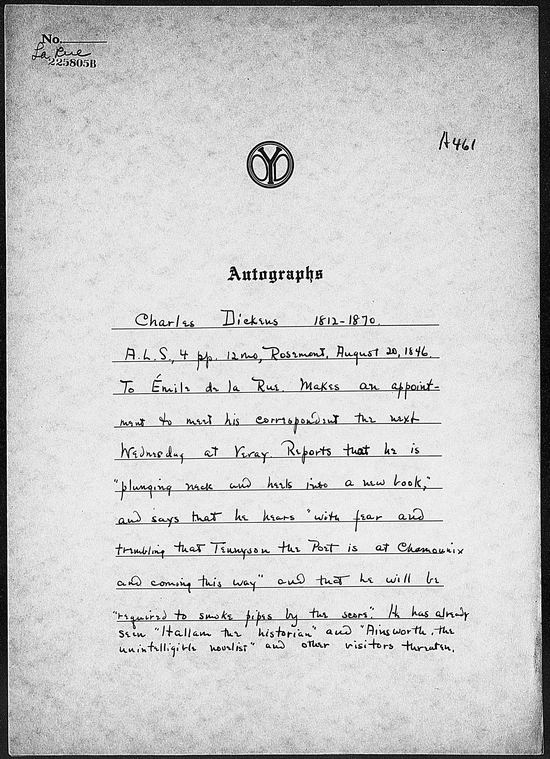 No.
La Rue
225805B
A461
Autographs
Charles Dickens 1812-1870.
A.L.S., 4 pp. 12mo, Rosemont, August 20, 1846.
To Émile de la Rue. Makes an appoint-
ment to meet his correspondent the next
Wednesday at Vevay. Reports that he is
"plunging neck and heels into a new book,"
and says that he hears "with fear and
trembling that Tennyson the Poet is at Chamounix
and coming this way" and that he will be
"required to smoke pipes by the score." He has already
seen "Hallam the historian" and "Ainsworth, the
unintelligible novelist" and other visitors threaten.